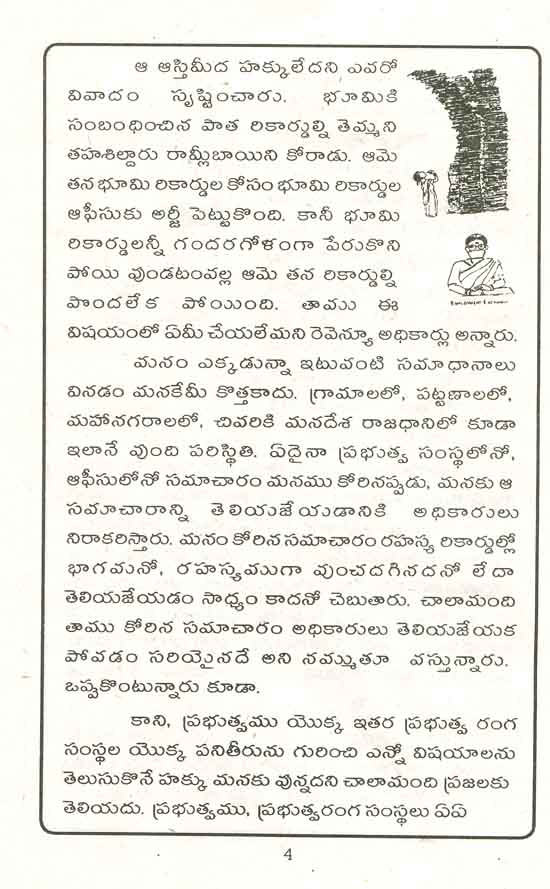 ఆ ఆస్తిమీద హక్కులేదని ఎవరో
వివాదం సృష్టించారు. భూమికి
సంబంధించిన పాత రికార్డుల్ని తెమ్మని
తహశిల్దారు రామ్లీబాయిని కోరాడు. ఆమె
తన భూమి రికార్డుల కోసం భూమి రికార్డుల
ఆఫీసుకు అర్జీ పెట్టుకొంది. కానీ భూమి
రికార్డులన్నీ గందరగోళంగా పేరుకొని
పోయి వుండటంవల్ల ఆమె తన రికార్డుల్ని
పొందలేక పోయింది. తాము ఈ
విషయంలో ఏమీ చేయలేమని రెవెన్యూ అధికార్లు అన్నారు.
మనం ఎక్కడున్నా ఇటువంటి సమాధానాలు
వినడం మనకేమీ కొత్తకాదు. గ్రామాలలో, పట్టణాలలో,
మహానగరాలలో, చివరికి మనదేశ రాజధానిలో కూడా
ఇలానే వుంది పరిస్థితి. ఏదైనా ప్రభుత్వ సంస్థలోనో,
ఆఫీసులోనో సమాచారం మనము కోరినప్పడు, మనకు ఆ
సమాచారాన్ని తెలియజేయడానికి అధికారులు
నిరాకరిస్తారు. మనం కోరిన సమాచారం రహస్య రికార్డుల్లో
భాగమనో, రహస్యముగా వుంచదగినదనో లేదా
తెలియజేయడం సాధ్యం కాదనో చెబుతారు. చాలామంది
తాము కోరిన సమాచారం అధికారులు తెలియజేయక
పోవడం సరియైనదే అని నమ్ముతూ వస్తున్నారు.
ఒప్పకొంటున్నారు కూడా.
కాని, ప్రభుత్వము యొక్క ఇతర ప్రభుత్వ రంగ
సంస్థల యొక్క పనితీరును గురించి ఎన్నో విషయాలను
తెలుసుకొనే హక్కు మనకు వున్నదని చాలామంది ప్రజలకు
తెలియదు. ప్రభుత్వము, ప్రభుత్వరంగ సంస్థలు ఏఏ
4